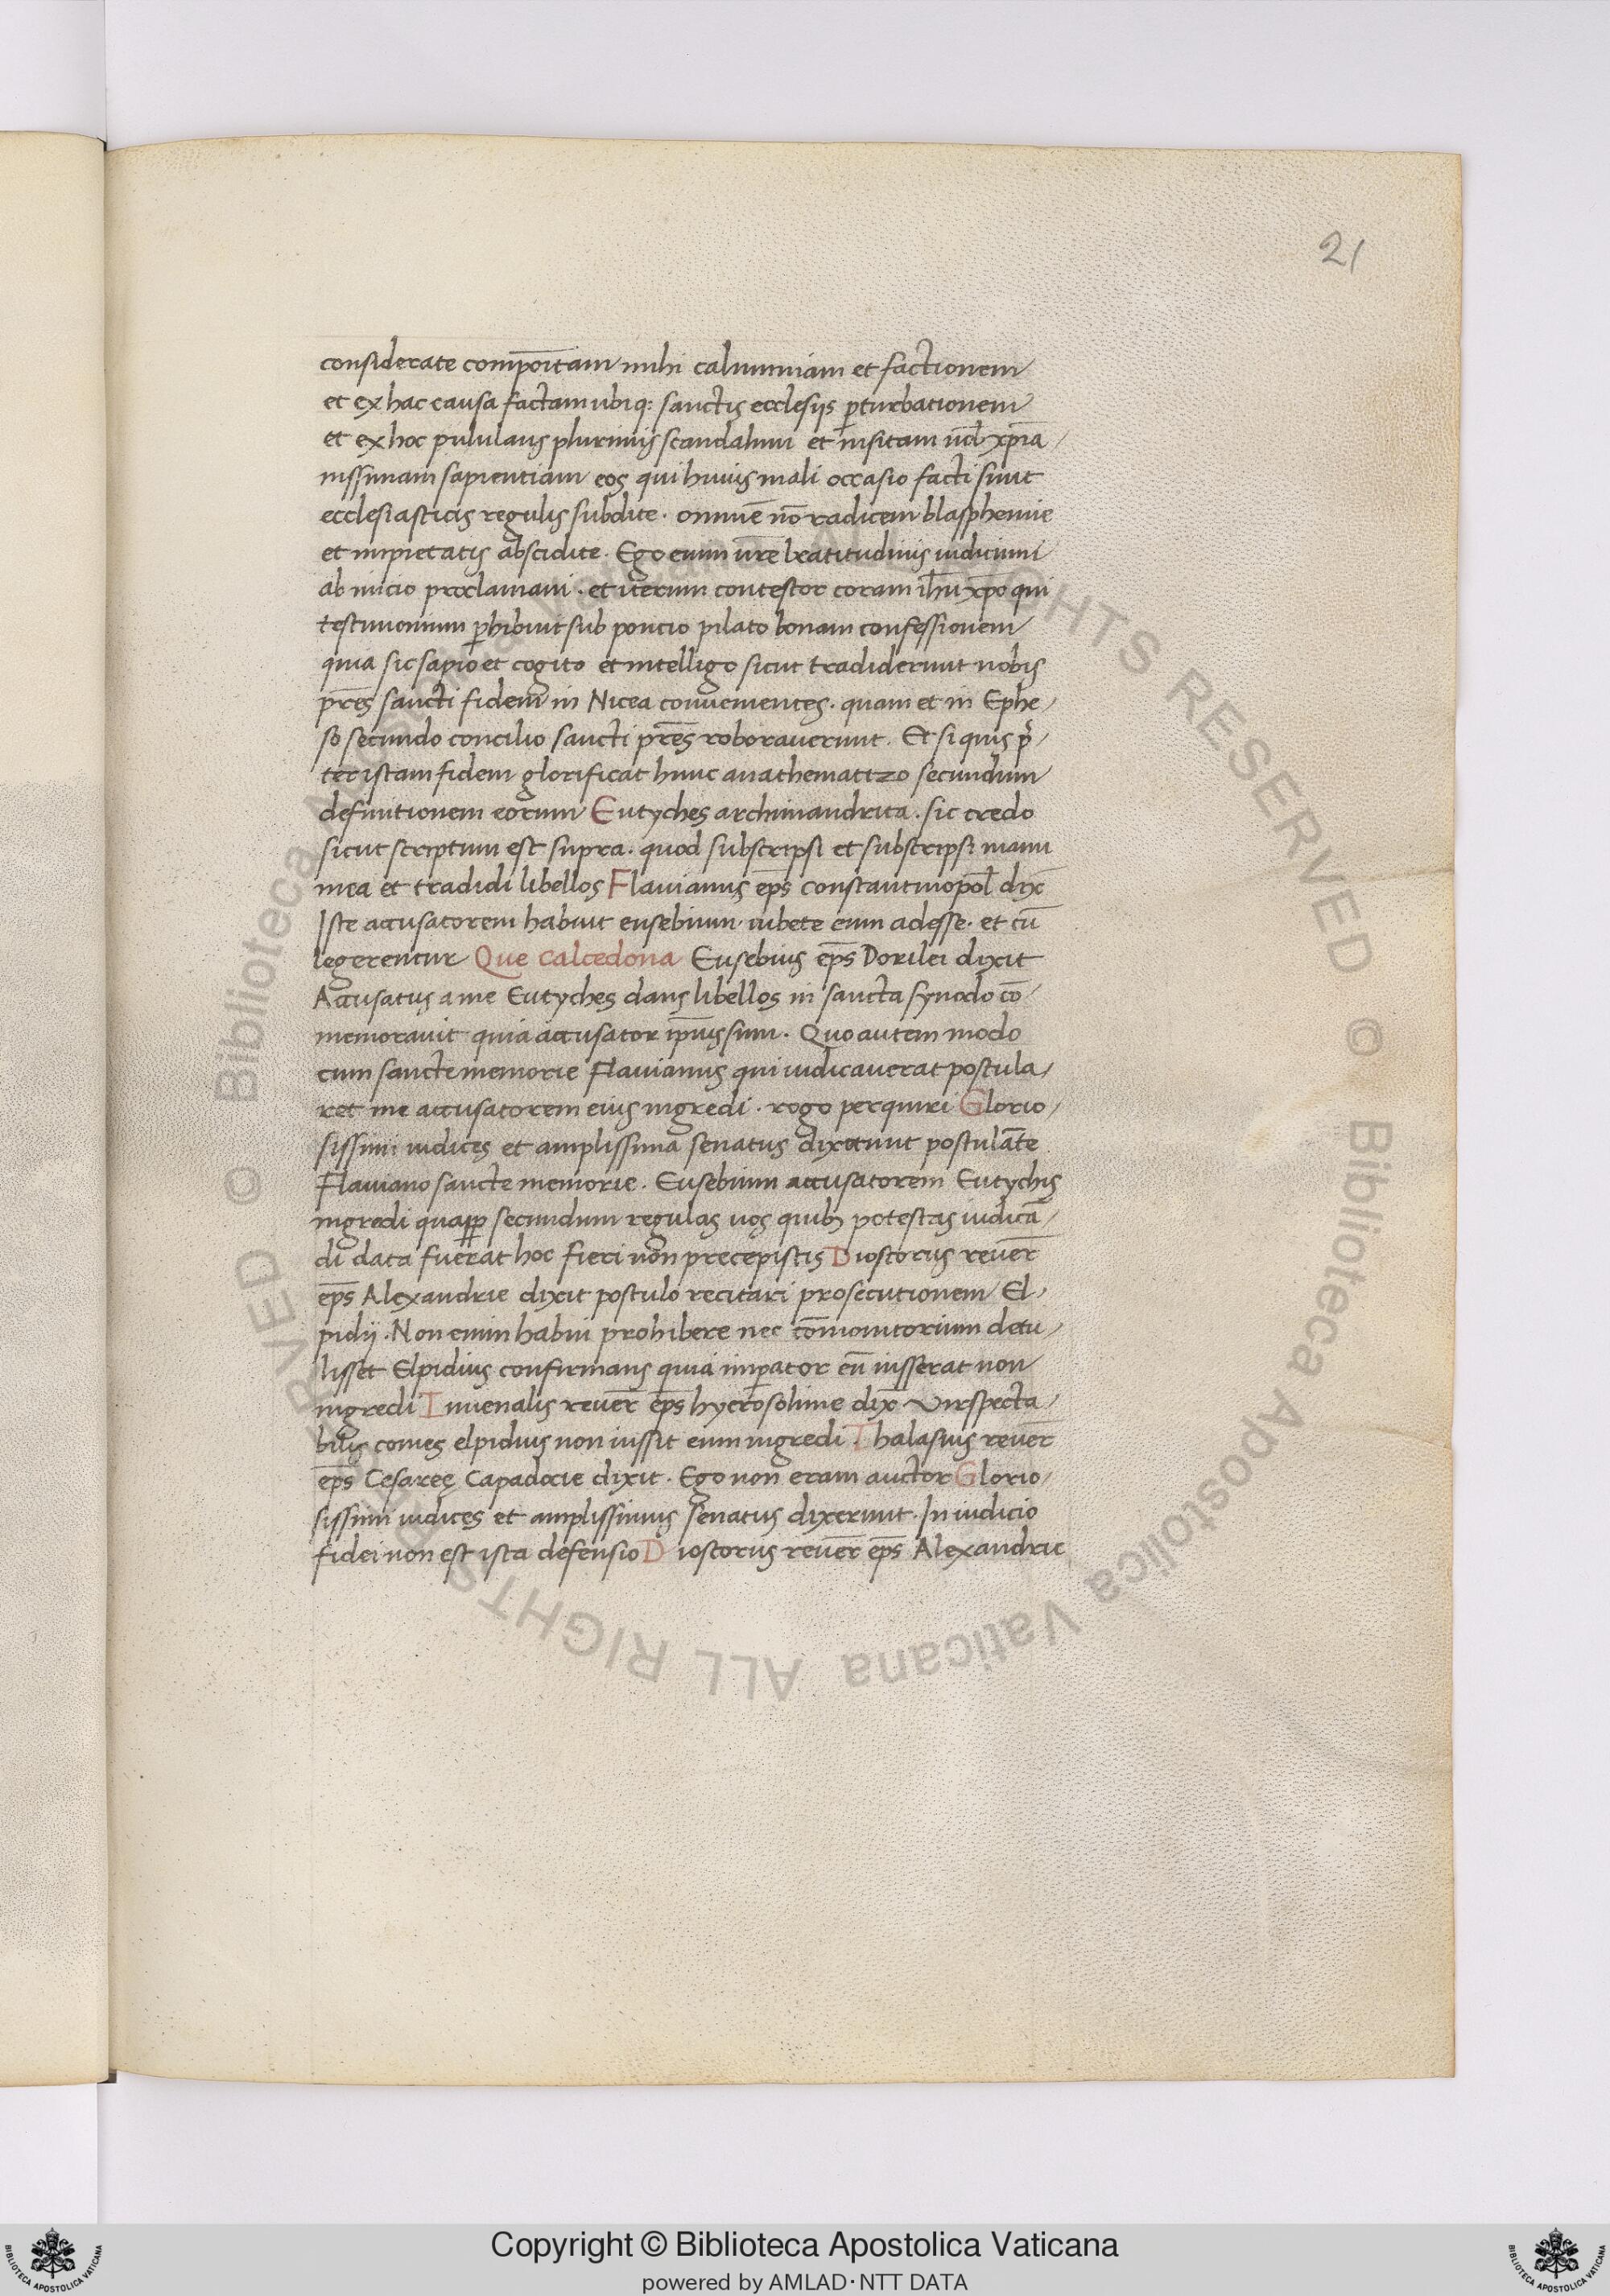 21
considerate comportam mihi calumniam et factionem
et ex hac causa factam ubiq: sanctis ecclesijs p̱turbationem
et ex hoc pululans plurimis scandalum et insitam ūd xp̄ia/
nissimam sapientiam eos qui huius mali occasio facti sunt
ecclesiasticis regulis subdite. omnē nō radicem blasphemie
et impietatis abscidite. Ego enim ūrē beatitudinis iudicium
ab inicio proclamaui. et iterum contestor coram ihū xp̄o qui
testimonium p̱hibuit sub poncio pilato bonam confessionem
quia sic sapio et cogito et intelligo sicut tradiderunt nobis
pr̄es sancti fidem in Nicea conuenientes. quam et in Ephe/
so secundo concilio sancti pr̄es roborauerunt. Et si quis p̄/
ter istam fidem glorificat hunc anathematizo secundum
definitionem eorum Eutyches archimandrita. sic credo
sicut scriptum est supra. quod subscripsi et subscripsi manu
mea et tradidi libellos Flauianus ep̄s constantinopol̄ dix̄
Iste accusatorem habuit eusebium. iubete eum adesse. et cū
legerentur Que calcedona Eusebius ep̄s Dorilei dixit
Accusatus a me Eutyches dans libellos in sancta synodo cō/
memorauit quia accusator ip̄ius sum. Quo autem modo
cum sancte memorie Flauianus qui iudicauerat postula/
ret me accusatorem eius ingredi. rogo perquiri Glorio/
sissimi iudices et amplissima senatus dixerunt postulāte
Flauiano sancte memorie. Eusebium accusatorem Eutychis
ingredi quapp̱ secundum regulas uos quibꝫ potestas iudicā/
di data fuerat hoc fieri non precepistis Dioscorus reuer̄
ep̄s Alexandrie dixit postulo recitari prosecutionem El/
pidij. Non enim habui prohibere nec cōmonitorium detu/
lisset Elpidius confirmans quia imp̱ator eū iusserat non
ingredi Iuuenalis reuer̄ ep̄s hyerosolime dix̄ Vir specta/
bilis comes elpidius non iussit eum ingredi. Thalasius reuer̄
ep̄s Cesareę Capadocie dixit. Ego non eram auctor Glorio/
sissimi iudices et amplissimus senatus dixerunt. In iudicio
fidei non est ista defensio Dioscorus reuer̄ ep̄s Alexandrie
© Biblioteca Apostolica Vaticana ALL RIGHTS RESERVED
© Biblioteca Apostolica Vaticana ALL RIGHTS RESERVED
Copyright © Biblioteca Apostolica Vaticana
powered by AMLAD·NTT DATA
BIBLIOTECA APOSTOLICA VATICANA
BIBLIOTECA APOSTOLICA VATICANA